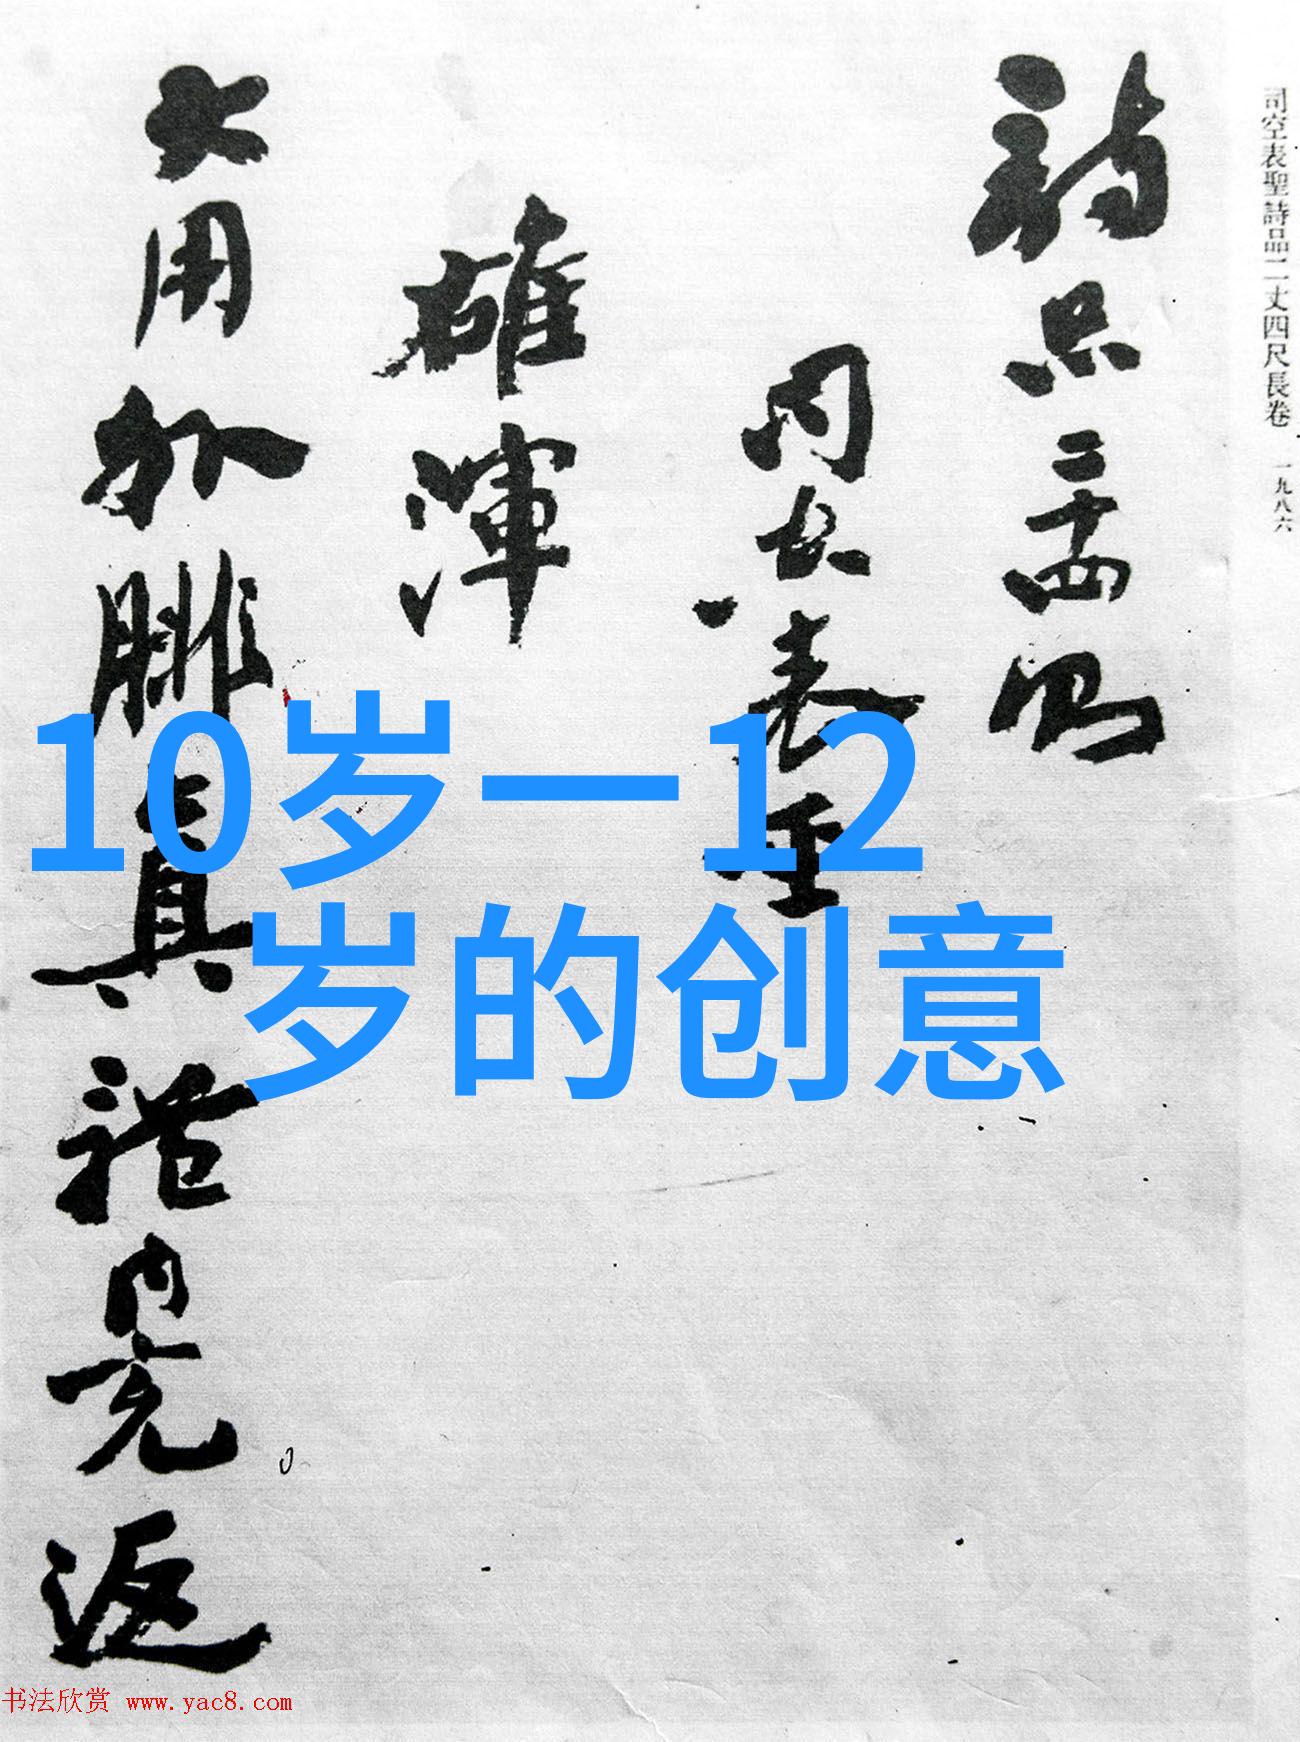 司空表聖詩品二丈四尺長卷 一九八六
詩品二十四則
司空表聖
雄渾
大用外腓真體内充返
10岁一12
岁的创意
书法欣赏 www.yac8.com